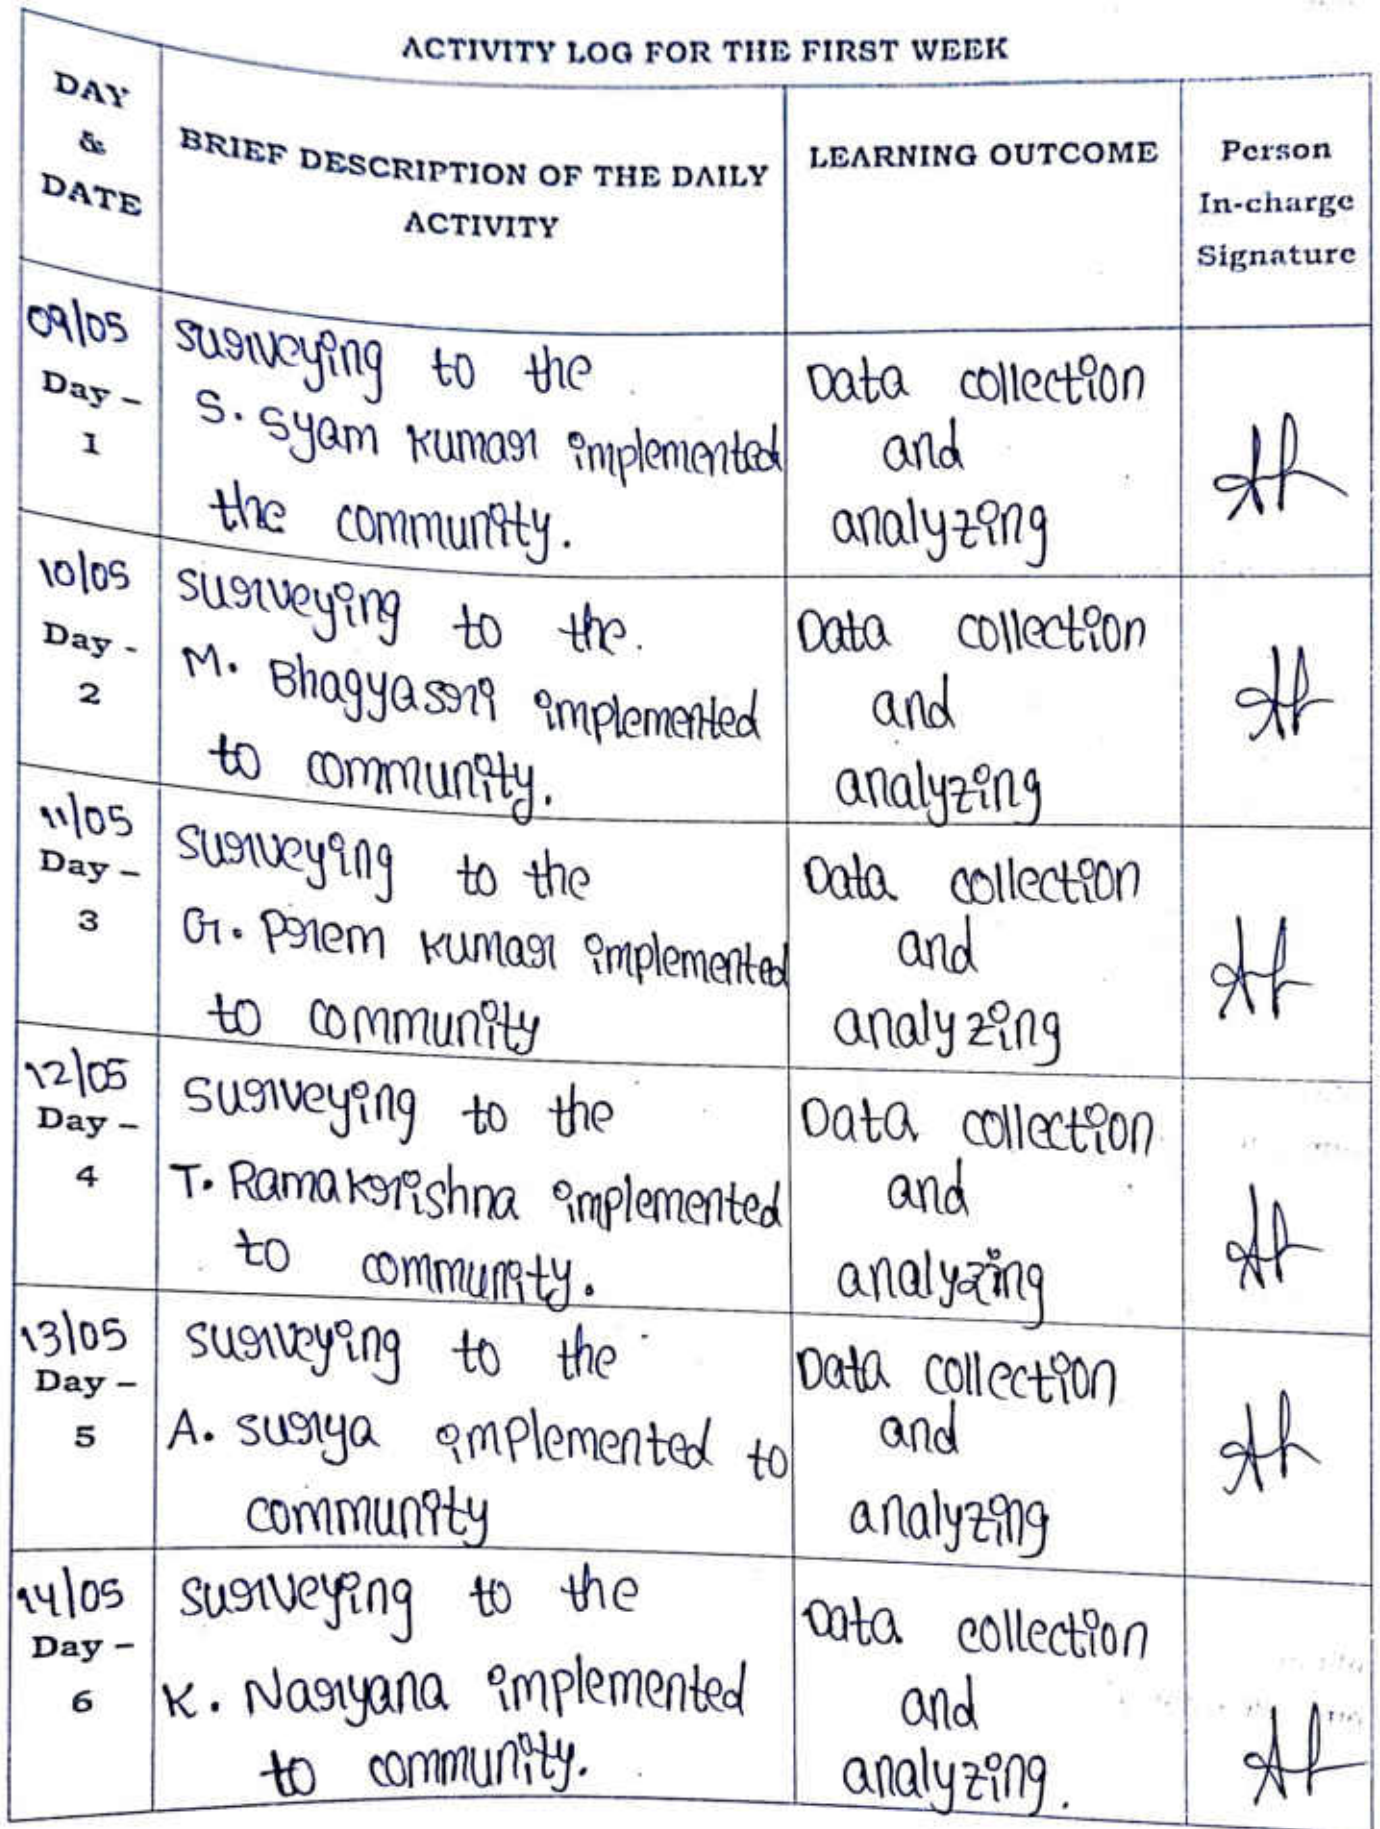 ACTIVITY LOG FOR THE FIRST WEEK
DAY
&
DATE
BRIEF DESCRIPTION OF THE DAILY
ACTIVITY
LEARNING OUTCOME
Person
In-charge
Signature
09/05
Day –
1
surveying to the
S. Syam kumar implemented
the community.
Data collection
and
analyzing
10/05
Day -
2
surveying to the.
M. Bhagyasri implemented
to community.
Data collection
and
analyzing
11/05
Day –
3
surveying to the
G. Prem kumar implemented
to community
Data collection
and
analyzing
12/05
Day –
4
surveying to the
T. Ramakrishna implemented
to community.
Data collection
and
analyzing
13/05
Day –
5
surveying to the
A. surya implemented to
community
Data collection
and
analyzing
14/05
Day –
6
surveying to the
K. Naryana implemented
to community.
Data collection
and
analyzing.